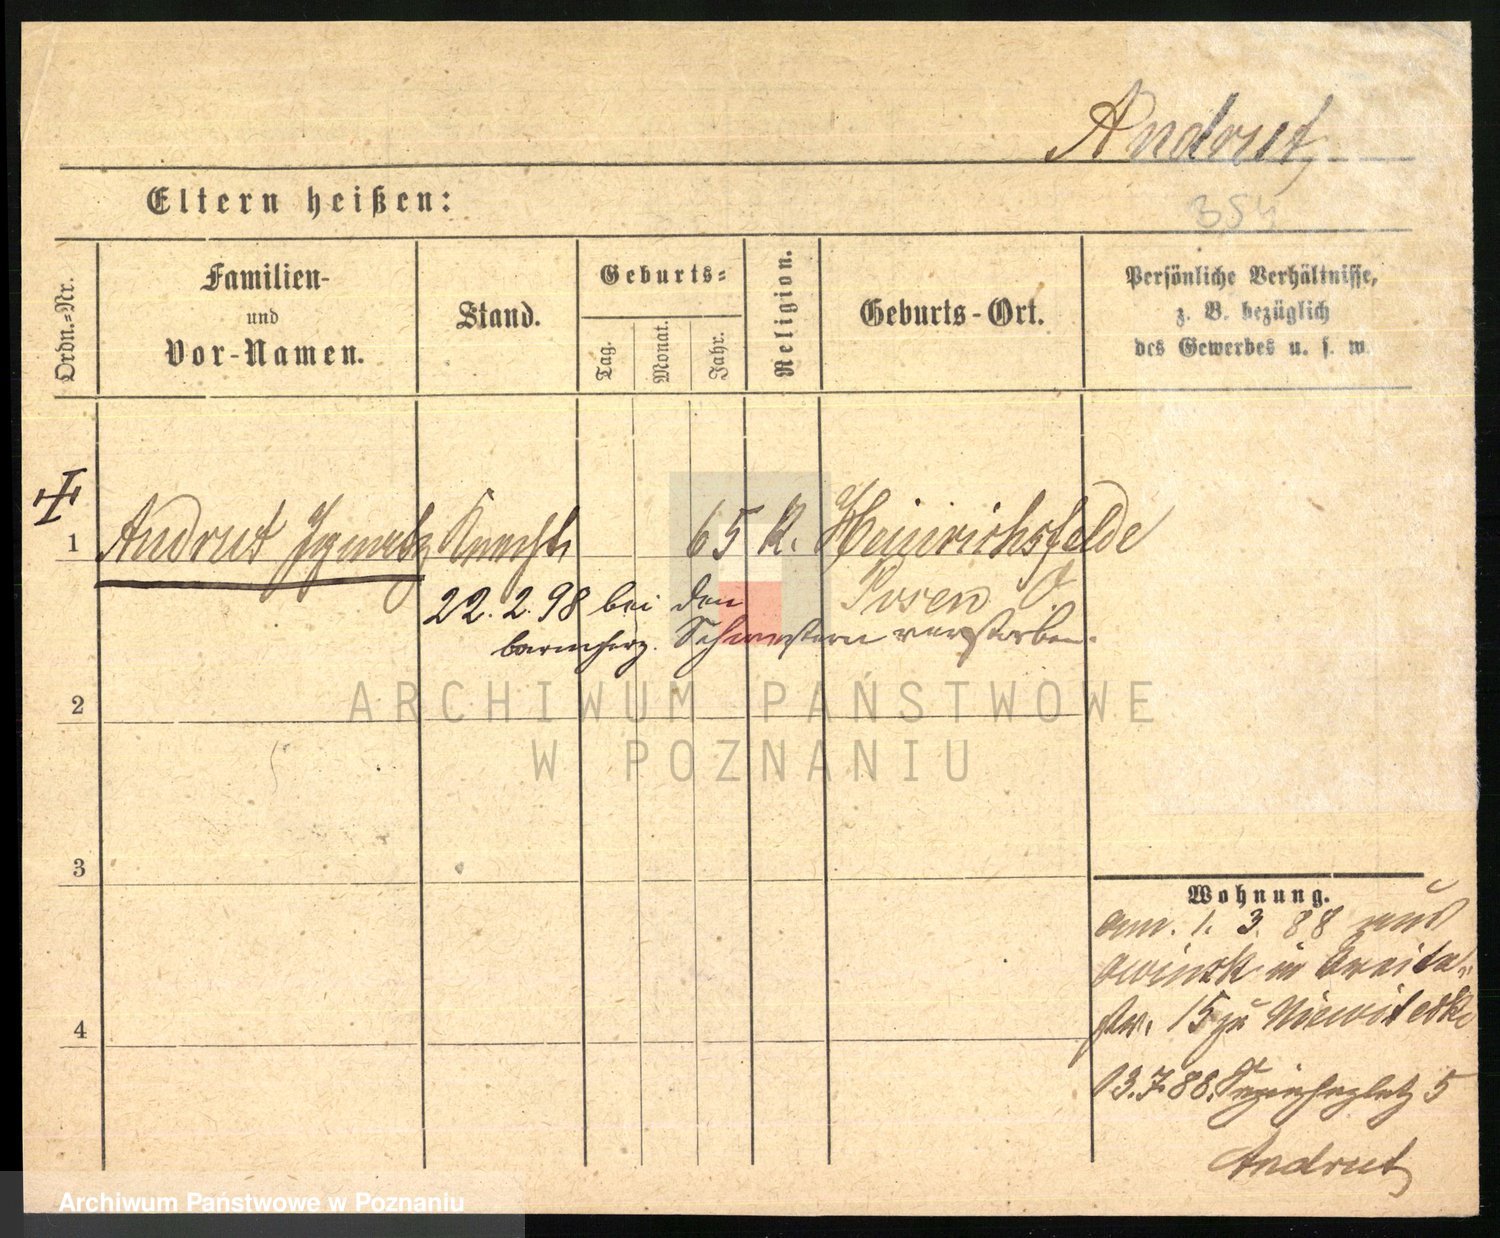 Andrut
354
Eltern heißen:
Ordn.-Nr.
Familien-
und
Vor-Namen.
Stand.
Geburts-
Tag.
Monat.
Jahr.
Religion.
Geburts-Ort.
Persönliche Verhältnisse,
z. B. bezüglich
des Gewerbes u. s. w.
1
Andrut Ignatz Knecht 65 K. Heinrichsfelde
Posen
22. 2. 98 bei den
barmherz. Schwestern verstorben.
2
ARCHIWUM PAŃSTWOWE
W POZNANIU
3
Wohnung.
am. 1. 3. 88 aus
Owinsk in Breite-
str. 15 zu
4
13.7.88. 5
Andrut
Archiwum Państwowe w Poznaniu